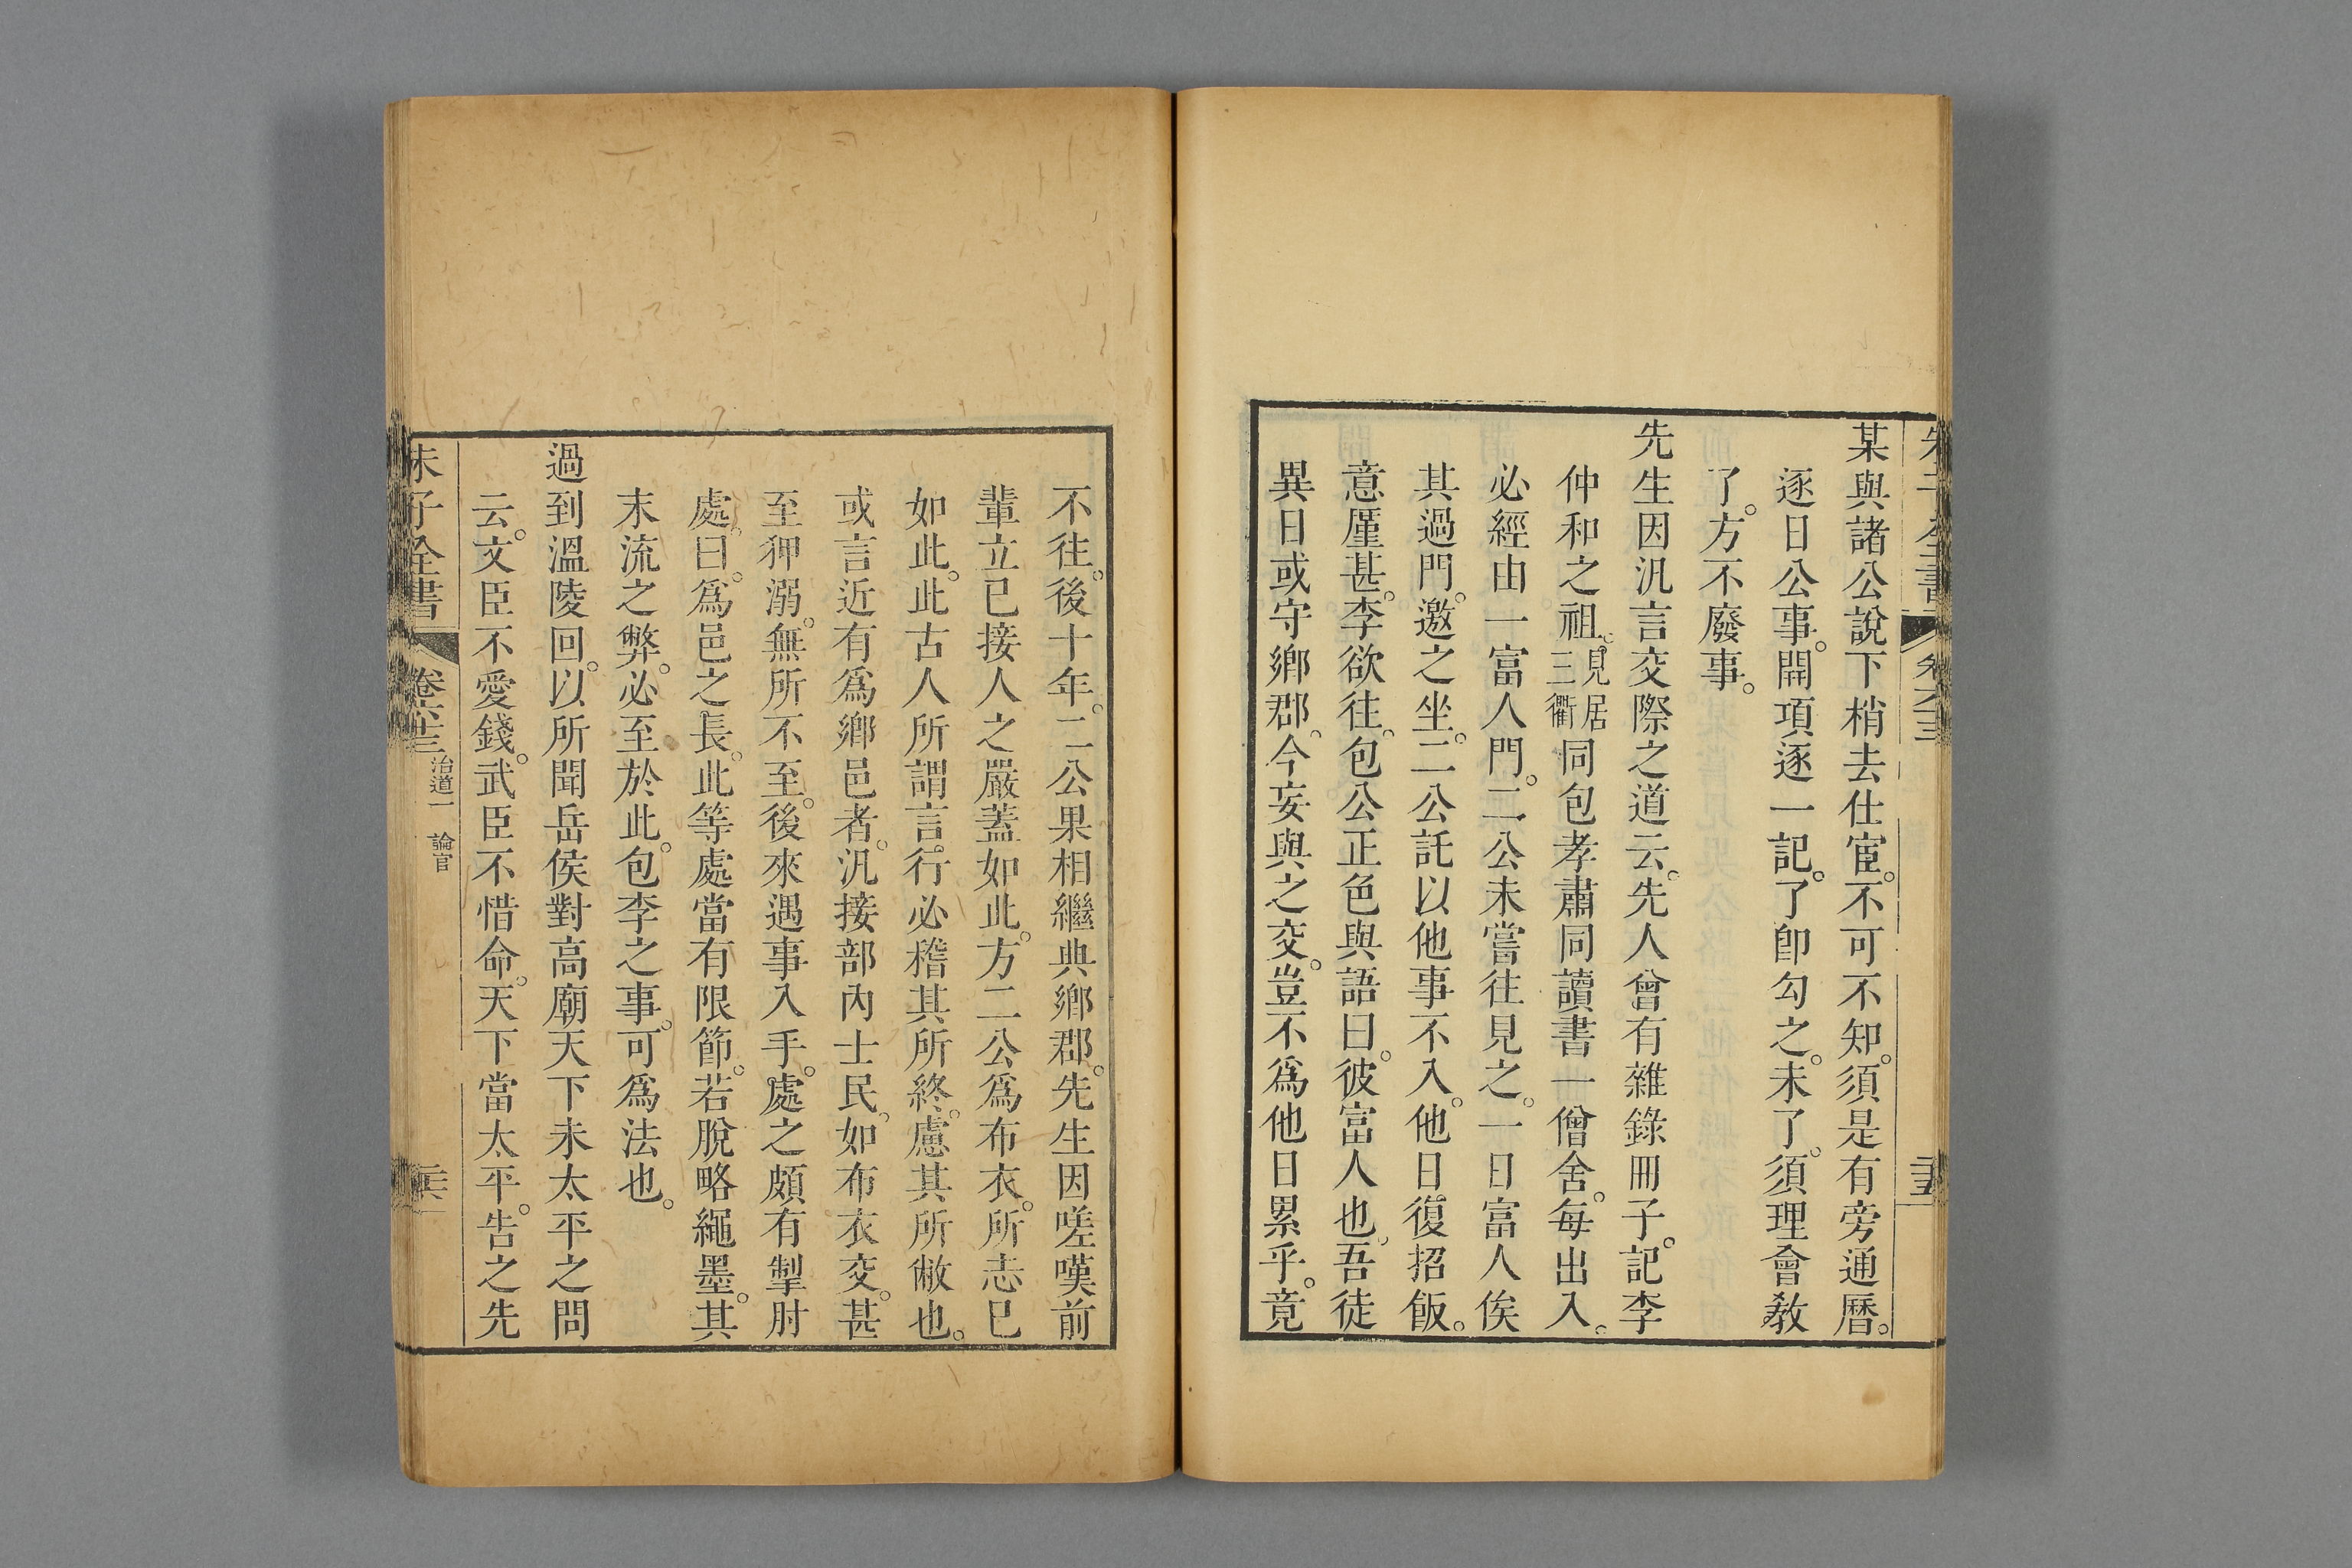 某與諸公說下梢去仕宦。不可不知。須是有旁通曆。
逐日公事。開項逐一記。了卽勾之。未了。須理會敎
了。方不廢事。
先生因汎言交際之道云。先人曾有雜錄冊子。記李
仲和之祖。見居三衢同包孝肅同讀書一僧舍。每出入。
必經由一富人門。二公未嘗往見之。一日富人俟
其過門。邀之坐。二公託以他事不入。他日復招飯。
意厪甚。李欲往。包公正色與語曰。彼富人也。吾徒
異日或守鄕郡。今妄與之交。豈不爲他日累乎。竟
不往。後十年。二公果相繼典鄕郡。先生因嗟嘆前
輩立已接人之嚴蓋如此。方二公爲布衣。所志已
如此。此古人所謂言行必稽其所終。慮其所敝也。
或言近有爲鄕邑者。汎接部內士民。如布衣交。甚
至狎溺。無所不至。後來遇事入手。處之頗有掣肘
處。曰。爲邑之長。此等處當有限節。若脫略繩墨。其
末流之弊。必至於此。包李之事。可爲法也。
過到溫陵回。以所聞岳侯對高廟天下未太平之問
云。文臣不愛錢。武臣不惜命。天下當太平。告之先
朱子全書
卷六十三
治道一 論官